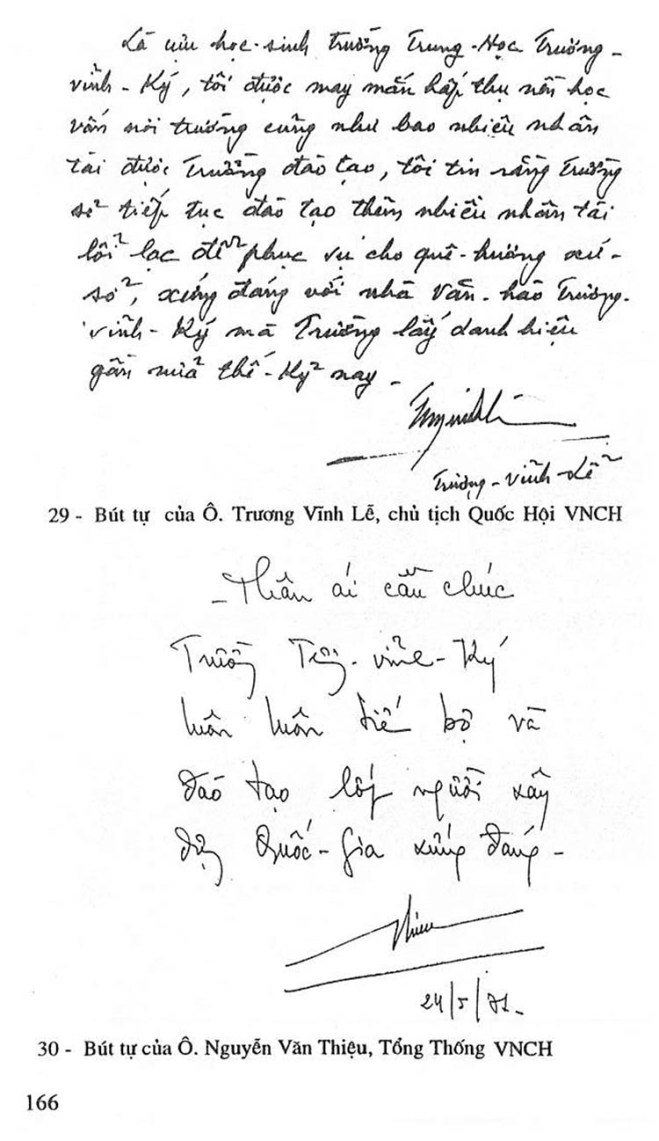 Là cựu học-sinh trường Trung-Học Trương-
Vĩnh-Ký, tôi được may mắn hấp thụ nền học
vấn nơi trường cũng như bao nhiêu nhân
tài được Trường đào tạo, tôi tin rằng Trường
sẽ tiếp tục đào tạo thêm nhiều nhân tài
lỗi lạc để phục vụ cho quê-hương xứ-
sở, xứng đáng với nhà Văn-hào Trương-
Vĩnh-Ký mà Trường lấy danh hiệu
gần nửa thế-kỷ nay -
Trương-Vĩnh-Lễ
29 - Bút tự của Ô. Trương Vĩnh Lễ, chủ tịch Quốc Hội VNCH
- Thân ái cầu chúc
Trường Trương-Vĩnh-Ký
luôn luôn tiến bộ và
đào tạo lớp người xây
dựng Quốc-Gia xứng đáng -
Thiệu
24/5/71-
30 - Bút tự của Ô. Nguyễn Văn Thiệu, Tổng Thống VNCH
166